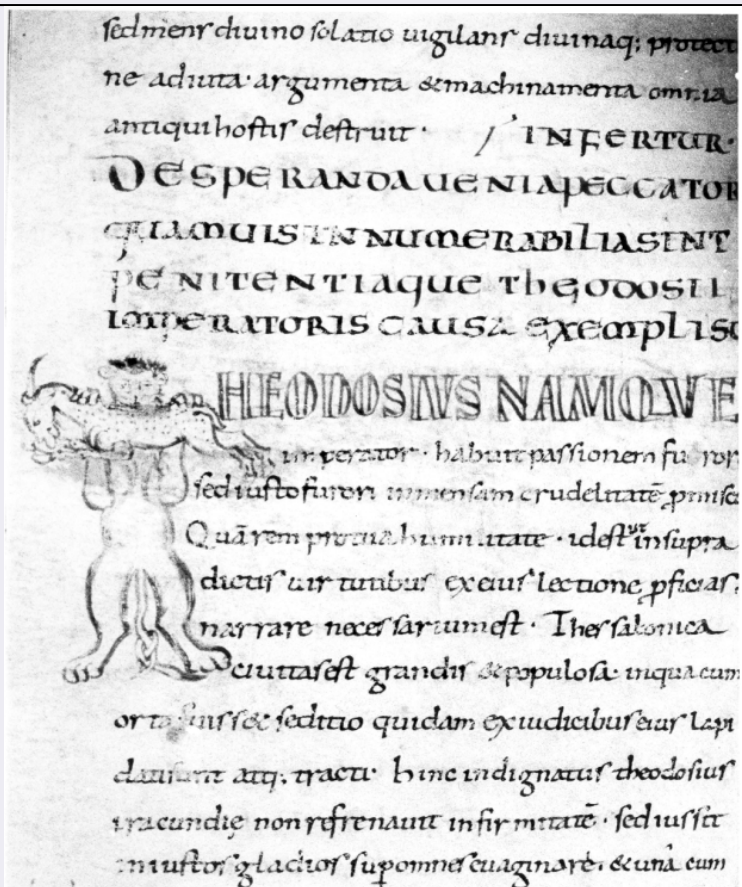 sedmens diuino solatio uigilans diuinaq; protect
ne adiuta· argumenta &machinamenta omnia
antiqui hostis destruit· INFERTUR·
DESPERANDA UENIA PECCATOR
QUAMUIS INNUMERABILIA SINT
PENITENTIAQUE THEODOSII
IMPERATORIS CAUSA EXEMPLI SC
THEODOSIUS NAMQVE
imperator· habuit passionem furor
sed iusto furori inmensam crudelitatē ꝓmisc
Quārem protua humilitate· idest ut insupra
dictis uirtutibus exeius lectione ꝓficias·
narrare necessarium est· Thessalonica
ciuitas est grandis &populosa· inqua cum
orta fuiss& seditio quidam exiudicibus eius lapi
dati sunt atq; tracti· hinc indignatus theodosius
iracundię non refrenauit infirmitatē· sed iussit
iniustos gladios sup omnes euaginare· &unā cum